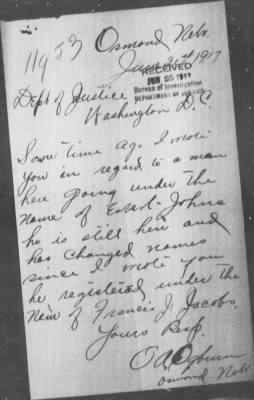 11957
Osmond Nebr.
June 21st 1917
RECEIVED
JUN 25 1917
Bureau of Investigation
DEPARTMENT OF JUSTICE
Dept of Justice
Washington D.C.
Some time ago I wrote
you in regard to a man
here going under the
name of Johns
he is still here and
has changed names
since I wrote you
he registered under the
Name of Francis J. Jacobs.
Yours Resp.
O A Ogburn
Osmond Nebr